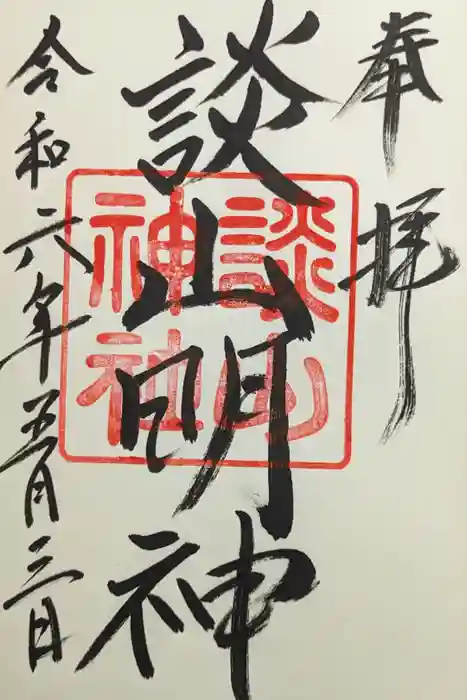 奉拝
談山明神
談山
神社
令和六年五月三日